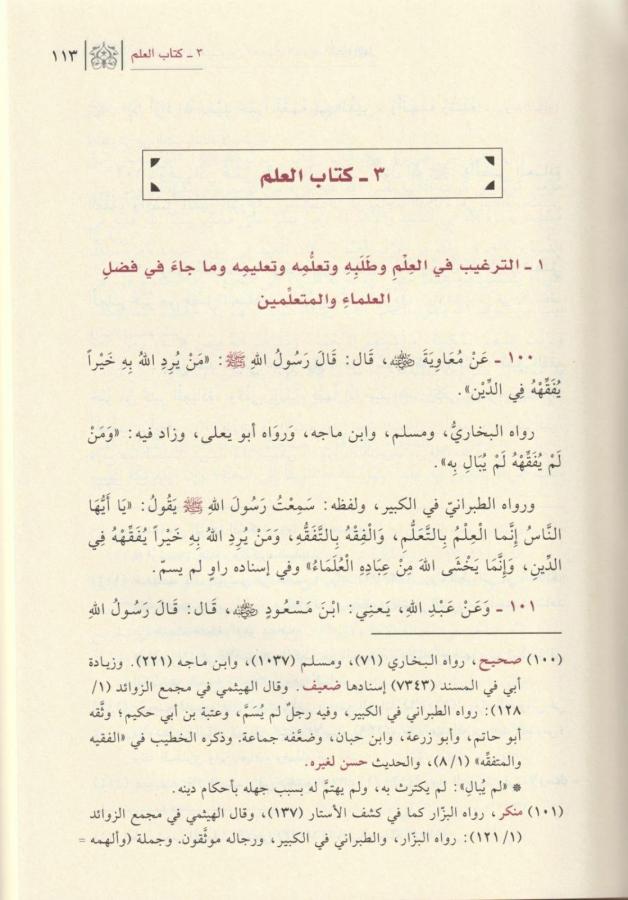 ٣ ـ كتاب العلم ١١٣
٣ ـ كتاب العلم
١ ـ الترغيب في العِلْمِ وطَلَبِهِ وتعلُّمِه وتعليمِه وما جاءَ في فضلِ
العلماءِ والمتعلِّمين
١٠٠ ـ عَنْ مُعَاوِيَةَ رضي الله عنه، قَالَ: قَالَ رَسُولُ اللهِ ﷺ: «مَنْ يُرِدِ اللهُ بِهِ خَيْراً
يُفَقِّهْهُ فِي الدِّيْنِ».
رواه البخاريُّ، ومسلم، وابن ماجه، وَروَاه أبو يعلى، وزاد فيه: «وَمَنْ
لَمْ يُفَقِّهْهُ لَمْ يُبَالِ بِه».
ورواه الطبرانيّ في الكبير، ولفظه: سَمِعْتُ رَسُولَ اللهِ ﷺ يَقُولُ: «يَا أَيُّهَا
النَّاسُ إِنَّما الْعِلْمُ بِالتَّعَلُّمِ، وَالْفِقْهُ بِالتَّفَقُّهِ، وَمَنْ يُرِدِ اللهُ بِهِ خَيْراً يُفَقِّهْهُ فِي
الدِّينِ، وَإِنَّمَا يَخْشَى اللهَ مِنْ عِبَادِهِ الْعُلَمَاءُ» وفي إسناده راوٍ لم يسمّ.
١٠١ ـ وَعَنْ عَبْدِ اللهِ، يَعنِي: ابْنَ مَسْعُودٍ رضي الله عنه، قَالَ: قَالَ رَسُولُ اللهِ
(١٠٠) صحيح، رواه البخاري (٧١)، ومسلم (١٠٣٧)، وابن ماجه (٢٢١). وزيادة
أبي في المسند (٧٣٤٣) إسنادها ضعيف. وقال الهيثمي في مجمع الزوائد (١/
١٢٨): رواه الطبراني في الكبير، وفيه رجلٌ لم يُسَمَّ، وعتبة بن أبي حكيم؛ وثَّقه
أبو حاتم، وأبو زرعة، وابن حبان، وضعَّفه جماعة. وذكره الخطيب في «الفقيه
والمتفقِّه» (٨/١)، والحديث حسن لغيره.
* «لم يُبالِ»: لم يكترث به، ولم يهتمَّ له بسبب جهله بأحكام دينه.
(١٠١) منكر، رواه البزّار كما في كشف الأستار (١٣٧)، وقال الهيثمي في مجمع الزوائد
(١٢١/١): رواه البزّار، والطبراني في الكبير، ورجاله موثَّقون. وجملة (وألهمه =